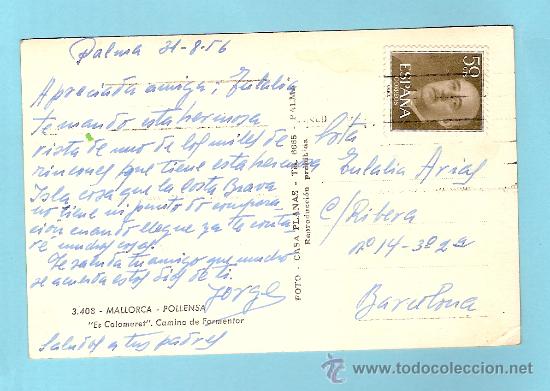 Palma 31-8-56
Apreciada amiga; Eulalia
te mando esta hermosa
vista de uno de los miles de
rincones que tiene esta hermosa
Isla cosa que la Costa Brava
no tiene ni punto de compara
ción cuando llegue ya te conta
re muchas cosas.
Te saluda tu amigo que mucho
se acuerda estos dias de ti.
Jorge
3.408 - MALLORCA - POLLENSA
"Es Colomeret". Camino de Formentor
Saludos a tus padres
FOTO - CASA PLANAS - TEL. 6085 - PALMA
Reproducción prohibida
50
CTS
ESPAÑA
CORREOS
Srta
Eulalia Arias
C/ Ribera
nº 14-3º 2ª
Barcelona
todocoleccion.net